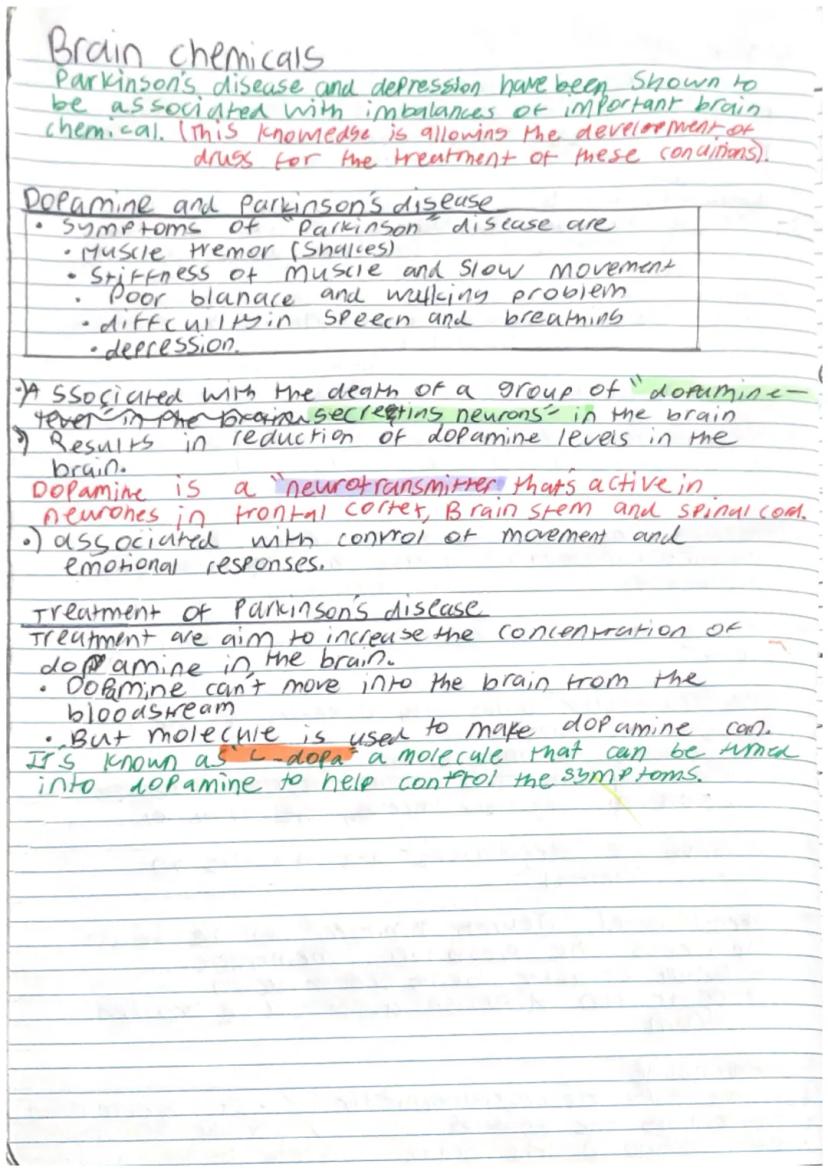 Brain chemicals
Parkinson's disease and depression have been shown to
be associated with imbalances of important brain
chemical. (This knowledge is allowing the development of
drugs for the treatment of these conditions).
Dopamine and Parkinson's disease
• Symptoms of "Parkinson" disease are
• Muscle tremor (Shakes)
• Stiffness of muscle and slow movement
• Poor blanace and walking problem
• difficulty in speech and breathing
• depression.
•) Associated with the death of a group of "dopamine-
secreting neurons" in the brain
•) Results in reduction of dopamine levels in the
brain.
Dopamine is a "neurotransmitter that's active in
neurones in frontal cortex, Brain stem and spinal cord.
•) associated with control of movement and
emotional responses.
Treatment of Parkinson's disease
Treatment are aim to increase the concentration of
dopamine in the brain.
• Dopamine can't move into the brain from the
bloodstream
• But molecule is used to make dopamine can.
It's known as "L-dopa" a molecule that can be turned
into dopamine to help control the symptoms.